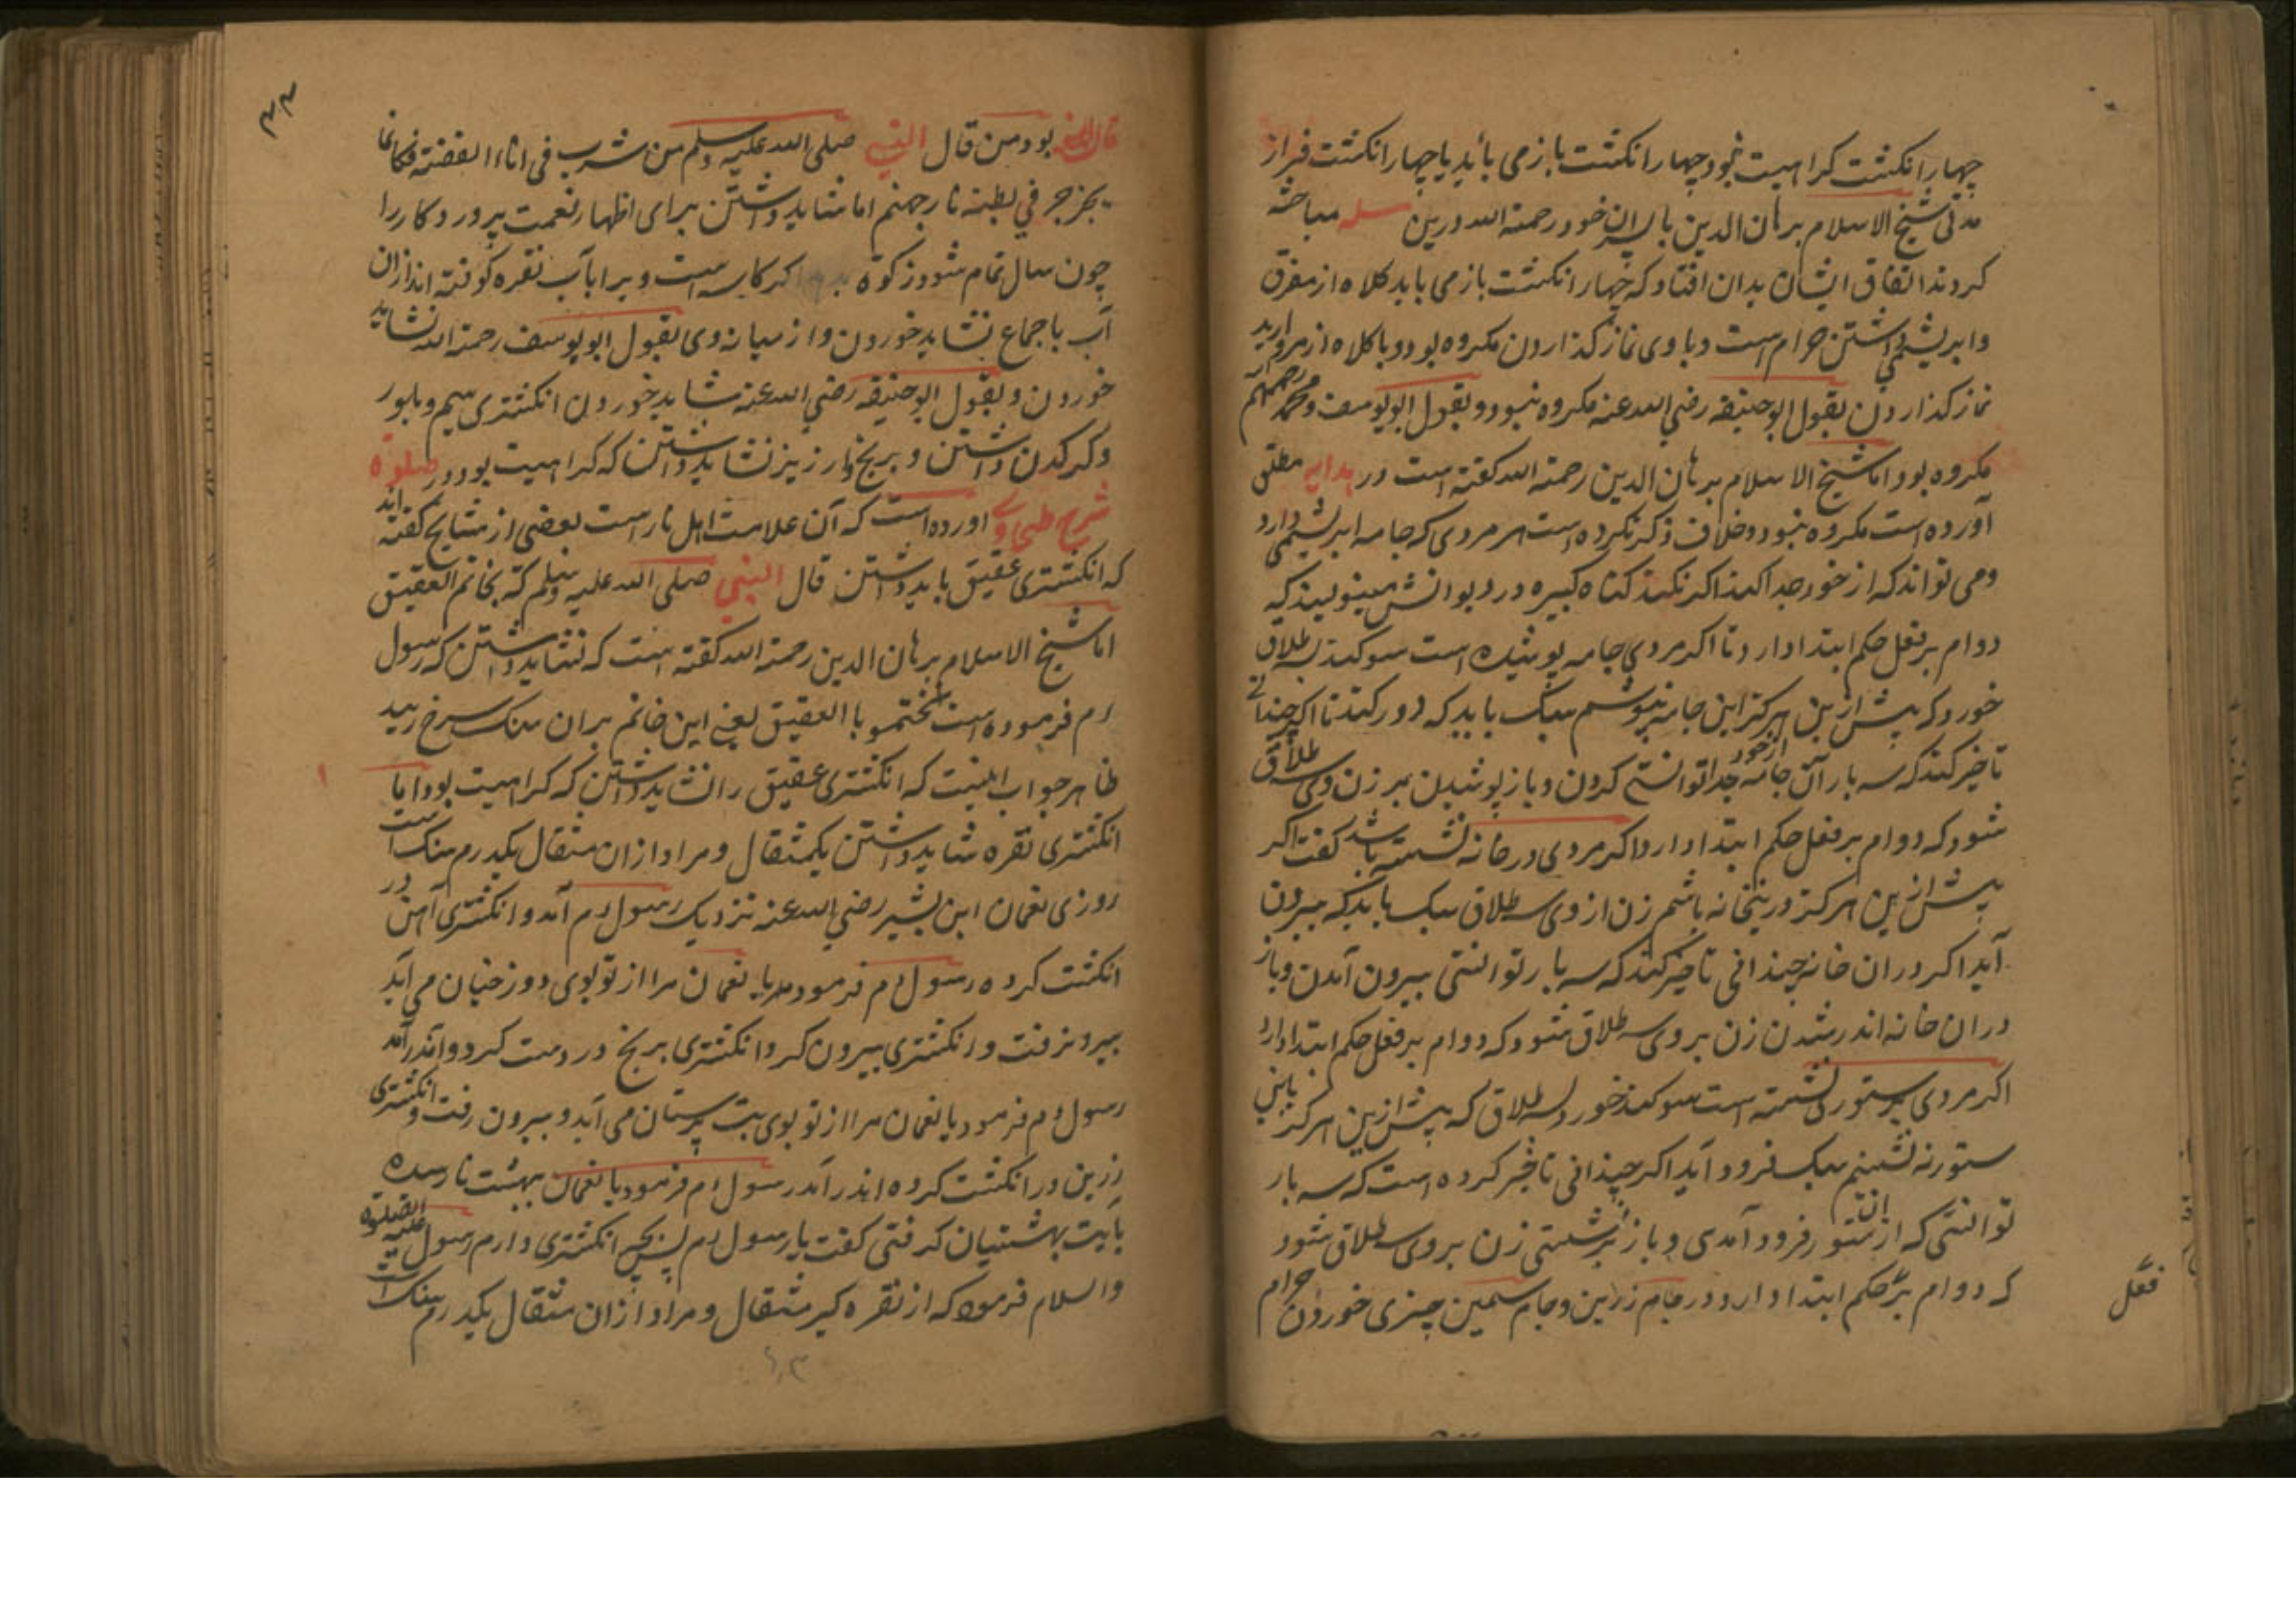 چهار انکشت کراهیت نبود چهار انکشت باز می باید یا چهار انکشت فراز
مدتی شیخ الاسلام برهان الدین با پسران خود رحمة الله درین مسله مباحثه
کردند اتفاق ایشان بدان افتاد که چهار انکشت باز می باید کلاه از مغرق
وابریشمی داشتن حرام است و با وی نماز کذاردن مکروه بود و با کلاه از مروارید
نماز کذاردن بقول ابوحنیفه رضی الله عنه مکروه نبود و بقول ابویوسف و محمد رحمهم
مکروه بود اما شیخ الاسلام برهان الدین رحمة الله کفته است در هدایه مطلق
آورده است مکروه نبود و خلاف ذکر نکرده است هر مردی که جامه ابریشمی دارد
ومی تواند که از خود جدا کند اکر نکند کناه کبیره در دیوانش مینویسند که
دوام بر فعل حکم ابتدا دارد تا اکر مردی جامه پوشیده است سوکند بطلاق
خورد که پیش ازین هرکز این جامه نپوشم سبک باید که دور کند تا اکر چندانی
تاخیر کند که سه بار آن جامه از خود جدا توانستی کردن و باز پوشیدن بر زن وی سه طلاق
شود که دوام بر فعل حکم ابتدا دارد اکر مردی در خانه نشسته باشد کفت اکر
پیش ازین هرکز درینخانه باشم زن از وی سه طلاق سبک باید که بیرون
آید اکر دران خانه چندانی تاخیر کند که سه بار توانستی بیرون آمدن و باز
دران خانه اندر شدن زن بروی سه طلاق شود که دوام بر فعل حکم ابتدا دارد
اکر مردی بر ستوری نشسته است سوکند خورد بسه طلاق که پیش ازین هرکز باین
ستور نه نشینم سبک فرود آید اکر چندانی تاخیر کرده است که سه بار
توانستی که از ان ستور فرود آمدی و باز بر نشستی زن بروی سه طلاق شود
که دوام بر حکم ابتدا دارد و در جام زرین و جام سیمین چیزی خوردن حرام
فعل
۳۳
بود من قال النبی صلی الله علیه وسلم من شرب فی اناء الفضته فکانما
یجرجر فی بطنه نار جهنم اما شاید داشتن برای اظهار نعمت پروردکار را
چون سال تمام شود زکوة اکر کاسه است ویرا بآب نقره کوفته اند ازان
آب باجماع نشاید خوردن و از میانه وی بقول ابویوسف رحمة الله نشاید
خوردن و بقول ابوحنیفه رضی الله عنه شاید خوردن انکشتری سیم و بلور
وکرکدن داشتن و برنج و ارزیز نشاید داشتن که کراهیت بود در صلوة
شرح طحاوی اورده است که آن علامت اهل نار است بعضی از مشایخ کفته اند
که انکشتری عقیق باید داشتن قال النبی صلی الله علیه وسلم که بخاتم العقیق
اما شیخ الاسلام برهان الدین رحمة الله کفته است که نشاید داشتن که رسول
م فرموده است تختمو با العقیق یعنی این خاتم بران سنک سرخ رسید
ظاهر جواب اینست که انکشتری عقیق را نشاید داشتن که کراهیت بود اما
انکشتری نقره شاید داشتن یکمثقال و مراد ازان مثقال یکدرم سنک است
روزی نعمان ابن بشیر رضی الله عنه نزدیک رسول م آمد و انکشتری آهن در
انکشت کرده رسول م فرمود یا نعمان مرا از تو بوی دوزخیان می آید
بیرون رفت و انکشتری بیرون کرد انکشتری برنج در دست کرد و اندر آمد
رسول م فرمود یا نعمان مرا از تو بوی بت پرستان می آید و بیرون رفت و انکشتری
زرین در انکشت کرده اندر آمد رسول م فرمود یا نعمان بهشت نارسیده
بهشتیان کرفتی کفت یا رسول م پس چه انکشتری دارم رسول علیه الصلوة
والسلام فرمود که از نقره کیر مثقال و مراد ازان مثقال یکدرم سنک است